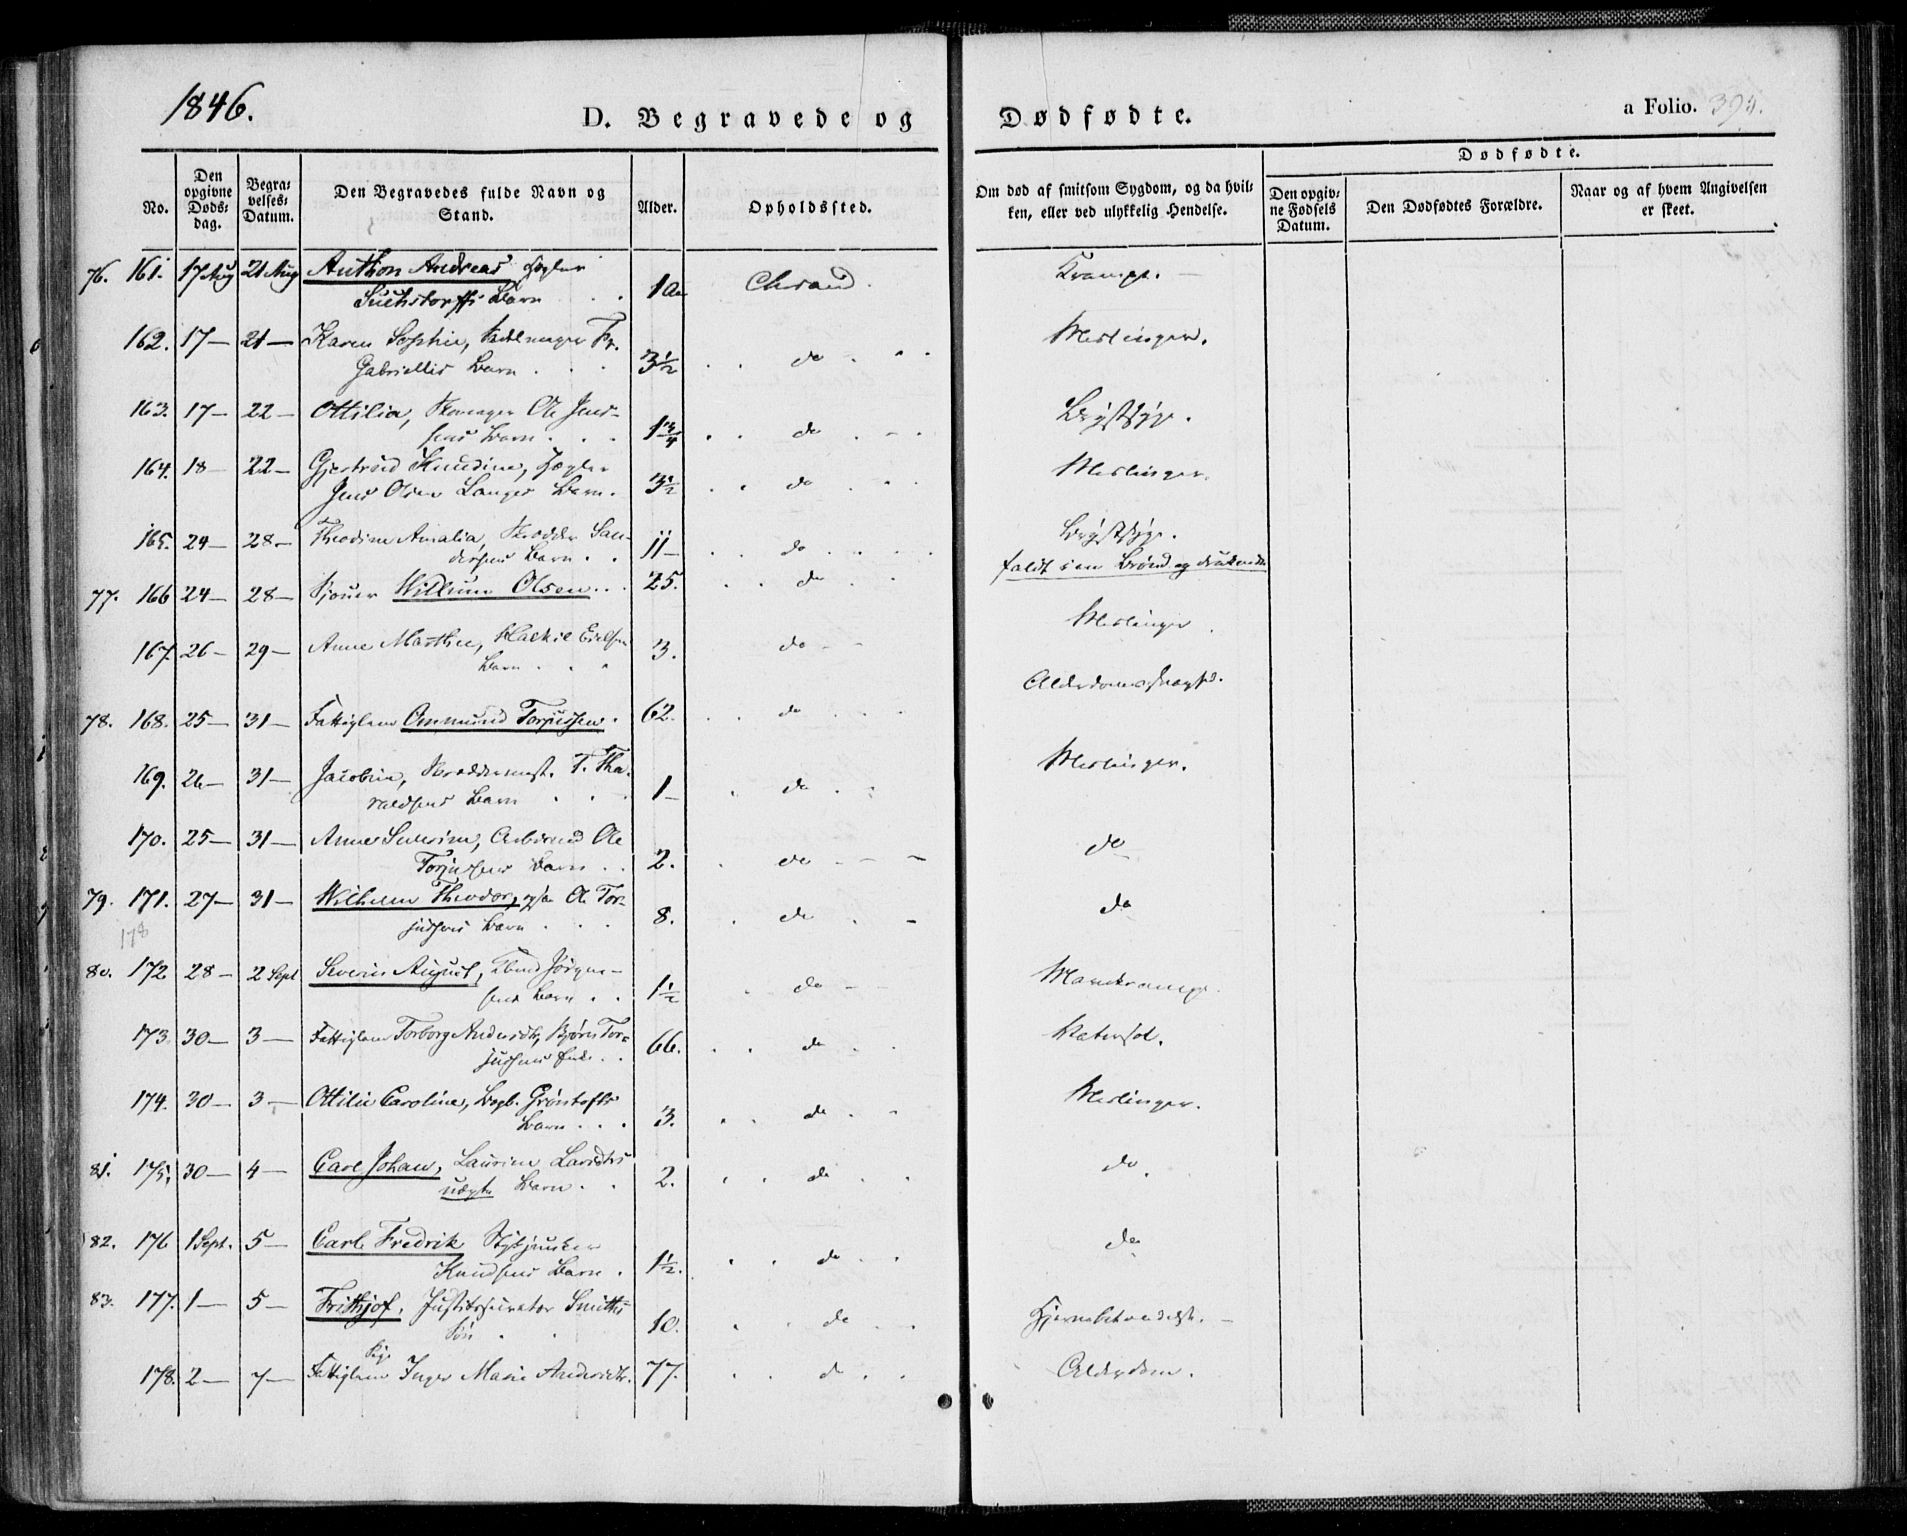 1846.
D. Begravede og Dødfødte.
a Folio. 394.
No.
Den opgivne Døds-dag.
Begra-velses-Datum.
Den Begravedes fulde Navn og Stand.
Alder.
Opholdssted.
Om død af smitsom Sygdom, og da hvil-ken, eller ved ulykkelig Hendelse.
Dødfødte.
Den opgiv-ne Fødsels Datum.
Den Dødfødtes Forældre.
Naar og af hvem Angivelsen er skeet.
76. 161. 17 Aug 21 Aug Anthon Andreas
Suchstorffs Barn . . 1 Chrsand. Krampe. —
162. 17 — 21 — Karen Sophie, Fr.
Gabriellis Barn . . . 3½ . . do . . . Meslinger.
163. 17 — 22 — Ottilia, Ole Jens-
sens Barn . . . 1¾ . . do . - . Brystsyge.
164. 18 — 22 — Gjertrud Knudine,
Jens Olsen Langes Barn . 3½ . . do . . . Meslinger.
165. 24 — 28 — Theodine Amalia, Skrædder San-
dersens Barn . . 11 — . . do . . . Brystsyge.
77. 166 24 — 28 — Sjouer Willum Olsen . . 25. . . do . . faldt i en Brønd og druknede
167. 26 — 29 — Anne Marthe, Eielsen
Barn . . . 3. do - - Meslinger.
78. 168. 25 — 31 — Fattiglem Ommund Torjussen . 62. . . do . . . Alderdomssvaghd.
169. 26 — 31 — Jacobine, Skræddermest. T. Tha-
raldsens Barn . . . 1 — . do . . Meslinger.
170. 25 — 31 — Anne Severine, Arbeismd Ole
Torjussens Barn . . 2. . do - - - do
79. 171. 27 — 31 — Wilhelm Theodor, ogsaa O. Tor-
jussens Barn . . . 8. . do . - do
178
80. 172 28 — 2 Sept Severin August, Jørgen-
sens Barn . . 1½ . do - - Mavekrampe.
173. 30 — 3 — Fattiglem Torborg Andersdtr, Bjørn Tor-
jussens Enke . . 66. . . do . . Vatersot.
174. 30 — 3 — Ottilie Caroline, Grøntofts
Barn . . . 3. . . do . . Meslinger.
81. 175. 30 — 4 — Carl Johan, Laurine Larsdtrs
uægte Barn . . 2. . . do . . do.
82. 176 1 Sept. 5 — Carl Fredrik Stykjunker
Knudsens Barn . 1½. . . do . . do
83. 177. 1 — 5 — Frithjof, Justitssecretær Smiths
Søn . . 10. . . do . . Hjernebetændelse. —
178. 2 — 7 — Fattiglem Pige Inger Marie Andersdtr. 77. . . d . . Alderdom.